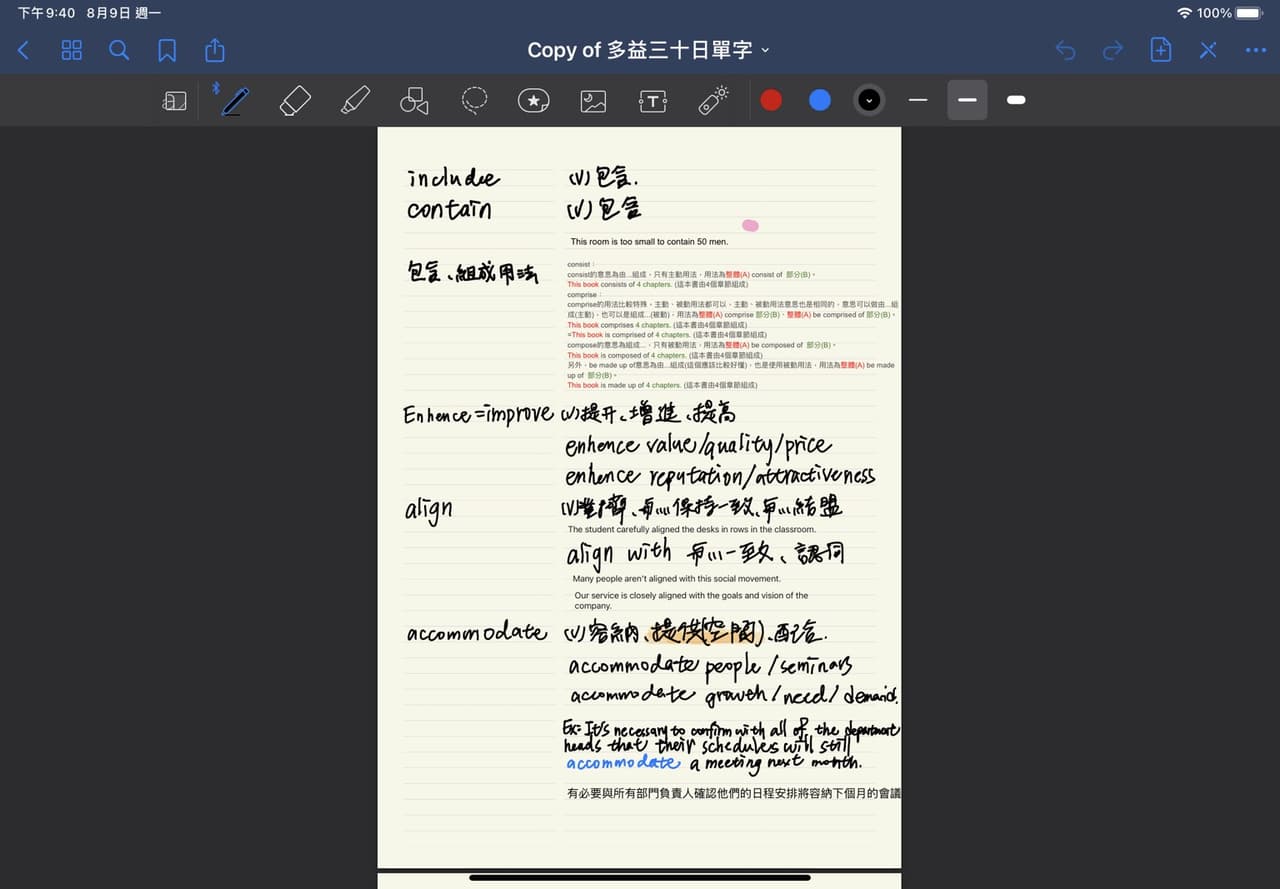 下午9:40 8月9日 週一 100%
Copy of 多益三十日單字
T
include (v) 包含.
contain (v) 包含
This room is too small to contain 50 men.
包含、組成用法
consist：
consist的意思為由...組成，只有主動用法，用法為整體(A) consist of 部分(B)。
This book consists of 4 chapters. (這本書由4個章節組成)
comprise：
comprise的用法比較特殊，主動、被動用法都可以，主動、被動用法意思也是相同的，意思可以做由...組
成(主動)，也可以是組成...(被動)，用法為整體(A) comprise 部分(B)，整體(A) be comprised of 部分(B)。
This book comprises 4 chapters. (這本書由4個章節組成)
=This book is comprised of 4 chapters. (這本書由4個章節組成)
compose的意思為組成...，只有被動用法，用法為整體(A) be composed of 部分(B)。
This book is composed of 4 chapters. (這本書由4個章節組成)
另外，be made up of意思為由...組成(這個應該比較好懂)，也是使用被動用法，用法為整體(A) be made
up of 部分(B)。
This book is made up of 4 chapters. (這本書由4個章節組成)
Enhence=improve (v)提升、增進、提高
enhence value/quality/price
enhence reputation/attractiveness
align (v)對齊、與...保持一致、與...結盟
The student carefully aligned the desks in rows in the classroom.
align with 與...一致、認同
Many people aren't aligned with this social movement.
Our service is closely aligned with the goals and vision of the
company.
accommodate (v)容納、提供(空間)、配合.
accommodate people/seminars
accommodate growth/need/demand.
Ex: It's necessary to confirm with all of the department
heads that their schedules will still
accommodate a meeting next month.
有必要與所有部門負責人確認他們的日程安排將容納下個月的會議